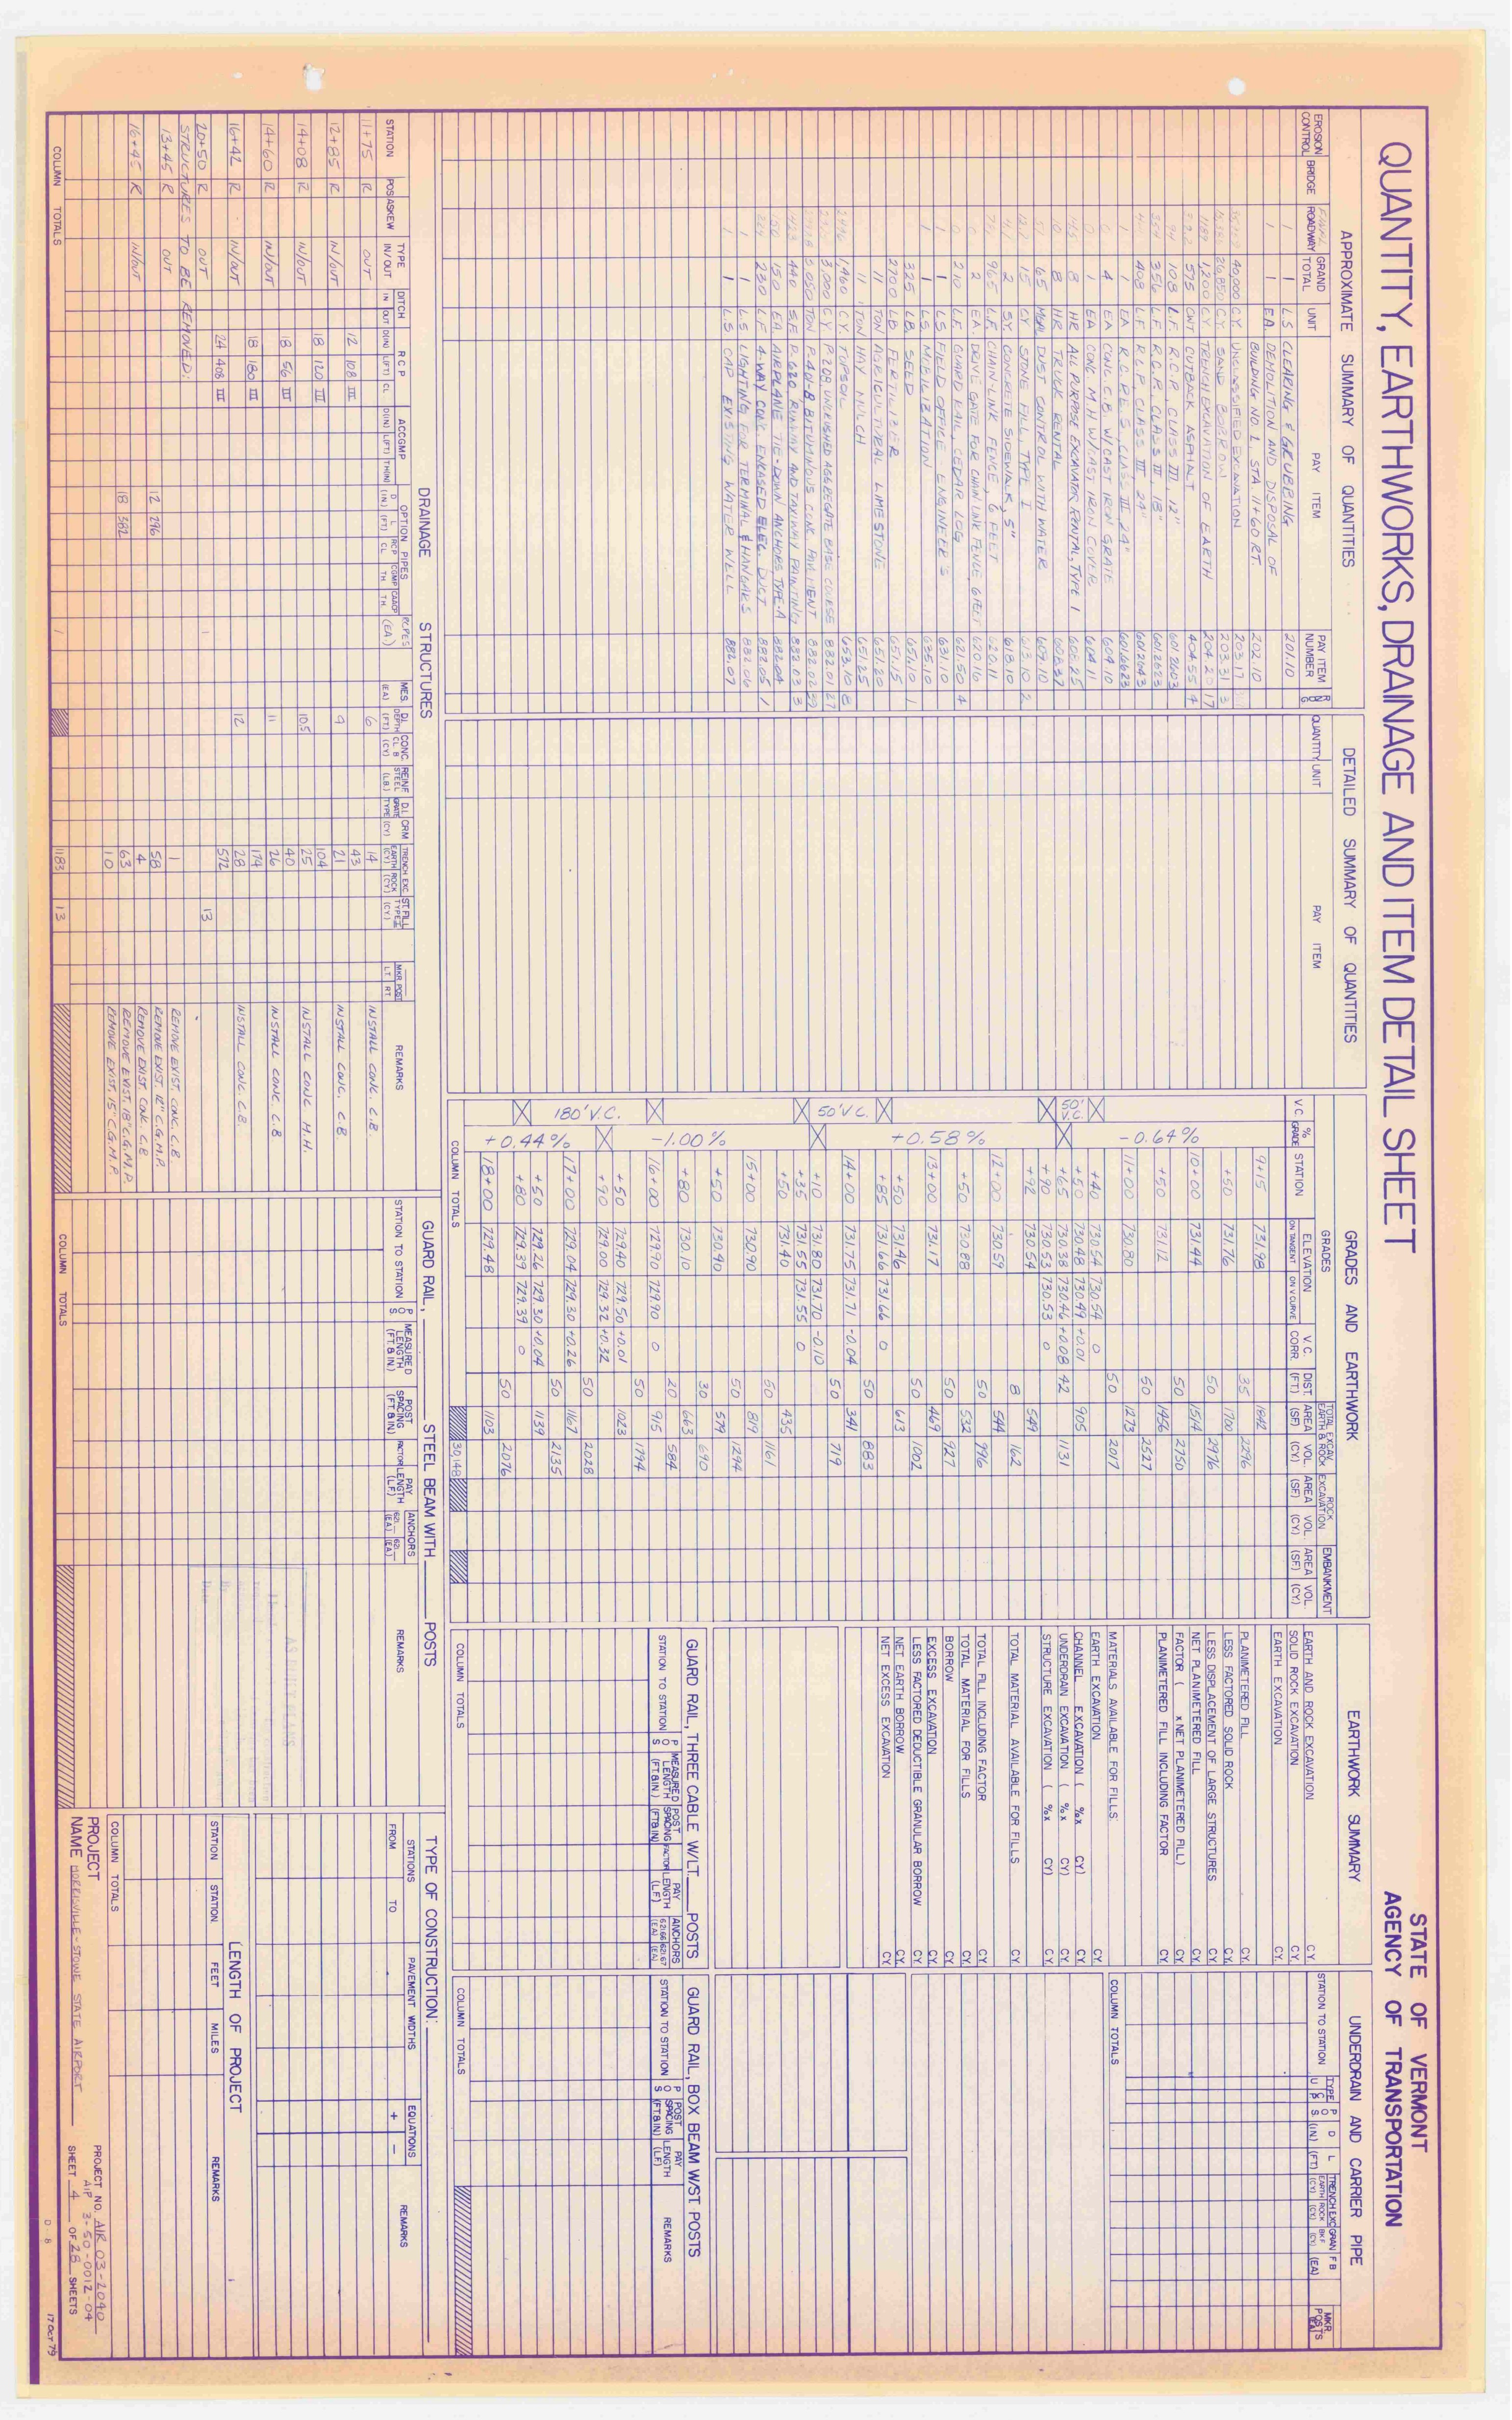 QUANTITY, EARTHWORKS, DRAINAGE AND ITEM DETAIL SHEET
STATE OF VERMONT
AGENCY OF TRANSPORTATION
APPROXIMATE SUMMARY OF QUANTITIES
EROSION CONTROL BRIDGE ROADWAY GRAND TOTAL UNIT PAY ITEM PAY ITEM NUMBER
1 1 L S CLEARING & GRUBBING 201.10
1 1 EA. DEMOLITION AND DISPOSAL OF
BUILDING NO. 2, STA 11+60 RT. 202.10
40,000 C.Y. UNCLASSIFIED EXCAVATION 203.17
26,850 C.Y. SAND BORROW 203.31
1,200 C.Y. TRENCH EXCAVATION OF EARTH 204.20
575 CWT CUTBACK ASPHALT 404.55
108 L.F. R.C.P., CLASS III, 12" 601.2603
356 L.F. R.C.P., CLASS III, 18" 601.2623
408 L.F. R.C.P., CLASS III 24" 601.2643
1 EA R.C.P.E.S., CLASS III 24" 601.6623
4 EA CONC. C.B. W/CAST IRON GRATE 604.10
1 EA CONC. M.H W/CAST IRON COVER 604.11
8 HR ALL PURPOSE EXCAVATOR RENTAL, TYPE 1 608.25
8 HR TRUCK RENTAL 608.37
65 MGAL DUST CONTROL WITH WATER 609.10
15 CY STONE FILL, TYPE I 613.10
2 S.Y. CONCRETE SIDEWALK, 5" 618.10
965 L.F. CHAIN-LINK FENCE, 6 FEET 620.11
2 EA. DRIVE GATE FOR CHAIN LINK FENCE, 6 FEET 620.16
210 L.F. GUARD RAIL, CEDAR LOG 621.50
1 LS FIELD OFFICE - ENGINEER'S 631.10
1 LS MOBILIZATION 635.10
325 LB SEED 651.10
2700 LB FERTILIZER 651.15
11 TON AGRICULTURAL LIMESTONE 651.20
11 TON HAY MULCH 651.25
1,460 C.Y. TOPSOIL 653.10
3,000 C.Y. P.208, UNCRUSHED AGGREGATE BASE COURSE 882.01
3,050 TON P.401-B BITUMINOUS CONC. PAVEMENT 882.02
440 S.F. P.620, RUNWAY AND TAXIWAY PAINTING 882.03
150 EA. AIRPLANE TIE-DOWN ANCHORS TYPE-A 882.04
230 L.F. 4-WAY CONC. ENCASED ELEC. DUCT 882.05
1 LS LIGHTING FOR TERMINAL & HANGARS 882.06
1 L.S CAP EXISTING WATER WELL 882.07
DETAILED SUMMARY OF QUANTITIES
QUANTITY UNIT PAY ITEM
GRADES AND EARTHWORK
V.C. % GRADE STATION GRADES ELEVATION ON TANGENT ON V.CURVE V.C. CORR. DIST. (FT) TOTAL EXCAV. EARTH & ROCK AREA (SF) VOL. (CY) ROCK EXCAVATION AREA (SF) VOL. (CY) EMBANKMENT AREA (SF) VOL. (CY)
50' V.C. 50' V.C. 180' V.C.
-0.64% +0.58% -1.00% +0.44%
9+15 731.98 1842
35 2296
+50 731.76 1700
50 2976
10+00 731.44 1514
50 2750
+50 731.12 1456
50 2527
11+00 730.80 1273
50 2017
+40 730.54 730.54 0
+50 730.48 730.49 +0.01 905
+65 730.38 730.46 +0.08 42 1131
+90 730.53 730.53 0
+92 730.54 549
8 162
12+00 730.59 544
50 996
+50 730.88 532
50 927
13+00 731.17 469
50 1002
+50 731.46 613
+85 731.66 731.66 0
50 883
14+00 731.75 731.71 -0.04 341
50 719
+10 731.80 731.70 -0.10
+35 731.55 731.55 0
+50 731.40 435
50 1161
15+00 730.90 819
50 1294
+50 730.40 579
30 690
+80 730.10 663
20 584
16+00 729.90 729.90 0 915
50 1794
+50 729.40 729.50 +0.01 1023
+90 729.00 729.32 +0.32
50 2028
17+00 729.04 729.30 +0.26 1167
50 2135
+50 729.26 729.30 +0.04 1139
+80 729.39 729.39 0
50 2076
18+00 729.48 1103
COLUMN TOTALS 30,148
EARTHWORK SUMMARY
EARTH AND ROCK EXCAVATION C.Y.
SOLID ROCK EXCAVATION C.Y.
EARTH EXCAVATION C.Y.
PLANIMETERED FILL C.Y.
LESS FACTORED SOLID ROCK C.Y.
LESS DISPLACEMENT OF LARGE STRUCTURES C.Y.
NET PLANIMETERED FILL C.Y.
FACTOR ( x NET PLANIMETERED FILL) C.Y.
PLANIMETERED FILL INCLUDING FACTOR C.Y.
MATERIALS AVAILABLE FOR FILLS:
EARTH EXCAVATION C.Y.
CHANNEL EXCAVATION ( %x CY) C.Y.
UNDERDRAIN EXCAVATION ( %x CY) C.Y.
STRUCTURE EXCAVATION ( %x CY) C.Y.
TOTAL MATERIAL AVAILABLE FOR FILLS C.Y.
TOTAL FILL INCLUDING FACTOR C.Y.
TOTAL MATERIAL FOR FILLS C.Y.
BORROW C.Y.
EXCESS EXCAVATION C.Y.
LESS FACTORED DEDUCTIBLE GRANULAR BORROW C.Y.
NET EARTH BORROW C.Y.
NET EXCESS EXCAVATION C.Y.
UNDERDRAIN AND CARRIER PIPE
STATION TO STATION TYPE U C P POS D (IN) L (FT) TRENCH EXC EARTH (CY) ROCK (CY) GRAN BKF. (CY) F B (EA) MKR POSTS (EA)
COLUMN TOTALS
DRAINAGE STRUCTURES
STATION POS/ASKEW TYPE IN/OUT DITCH IN OUT R C P D(IN) L(FT) CL ACCGMP D(IN) L(FT) TH(IN) OPTION PIPES D (IN) L (FT) RCP CL CGMP TH. CAACP TH. RCPES (EA) MES (EA) D.I. DEPTH (FT) CONC. CL B (CY) REINF STEEL (LB.) D.I. GRATE TYPE CRM (CY) TRENCH EXC. EARTH (CY) ROCK (CY) ST. FILL TYPE (CY) MKR POST LT. RT REMARKS
11+75 R OUT 6 14 INSTALL CONC. C.B.
12 108 III 43
12+85 R IN/OUT 9 21 INSTALL CONC. C.B.
18 120 III 104
14+08 R IN/OUT 10.5 25 INSTALL CONC M.H.
18 56 III 40
14+60 R IN/OUT 11 26 INSTALL CONC. C.B
18 180 III 174
16+42 R IN/OUT 12 28 INSTALL CONC. C.B.
24 408 III 572
20+50 R OUT 1 13
STRUCTURES TO BE REMOVED:
13+45 R OUT 1 REMOVE EXIST. CONC. C.B.
12 296 58 REMOVE EXIST. 12" C.G.M.P.
16+45 R IN/OUT 4 REMOVE EXIST. CONC. C.B.
18 582 63 REMOVE EXIST. 18" C.G.M.P.
10 REMOVE EXIST. 15" C.G.M.P.
COLUMN TOTALS 1 1183 13
GUARD RAIL, STEEL BEAM WITH POSTS
STATION TO STATION POS MEASURED LENGTH (FT.& IN) POST SPACING (FT.& IN) FACTOR PAY LENGTH (L.F.) ANCHORS 621. (EA) 621. (EA) REMARKS
COLUMN TOTALS
GUARD RAIL, THREE CABLE W/LT. POSTS
STATION TO STATION POS MEASURED LENGTH (FT.& IN) POST SPACING (FT.& IN) FACTOR PAY LENGTH (L.F.) ANCHORS 621.66 (EA) 621.67 (EA)
COLUMN TOTALS
GUARD RAIL, BOX BEAM W/ST POSTS
STATION TO STATION POS POST SPACING (FT.& IN) PAY LENGTH (L.F.) REMARKS
COLUMN TOTALS
TYPE OF CONSTRUCTION:
STATIONS FROM TO PAVEMENT WIDTHS EQUATIONS + - REMARKS
LENGTH OF PROJECT
STATION STATION FEET MILES REMARKS
COLUMN TOTALS
PROJECT NAME MORRISVILLE-STOWE STATE AIRPORT
PROJECT NO. AIR 03-2040
AIP 3-50-0012-04
SHEET 4 OF 28 SHEETS
D-8
17 OCT 79